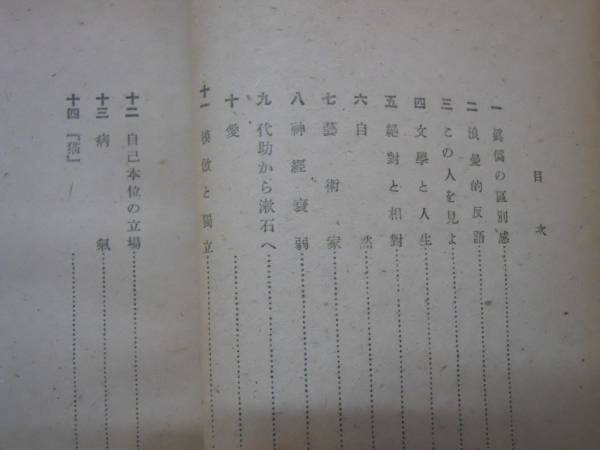 目次
一 眞僞の區別感
二 浪曼的反語
三 この人を見よ
四 文學と人生
五 絕對と相對
六 自然
七 藝術家
八 神經衰弱
九 代助から漱石へ
十 愛
十一 模倣と獨立
十二 自己本位の立場
十三 病氣
十四 「猫」